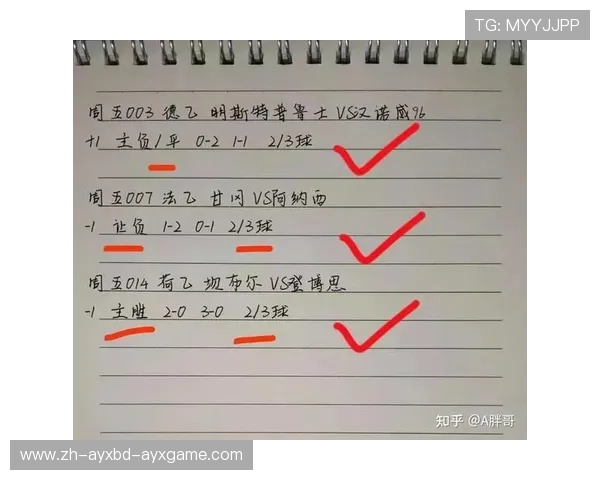 TG: MYYJJPP
周五003 德乙 明斯特普鲁士 VS汉诺威96
+1 主负/平 0-2 1-1 2/3球
周五007 法乙 甘冈 VS阿纳西
-1 让负 1-2 0-1 2/3球
周五014 荷乙 坎布尔 VS登博思
-1 主胜 2-0 3-0 2/3球
知乎 @A胖哥
www.zh-ayxbd-ayxgame.com